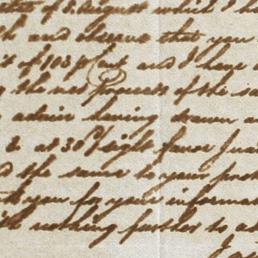 of 5 August which I h
and observe that you
of 103 p Cent and I have
the net proceeds of the sa
advise having drawn a
2 at 30 d/sight favor
the same to your
you for your informa
nothing further to ad